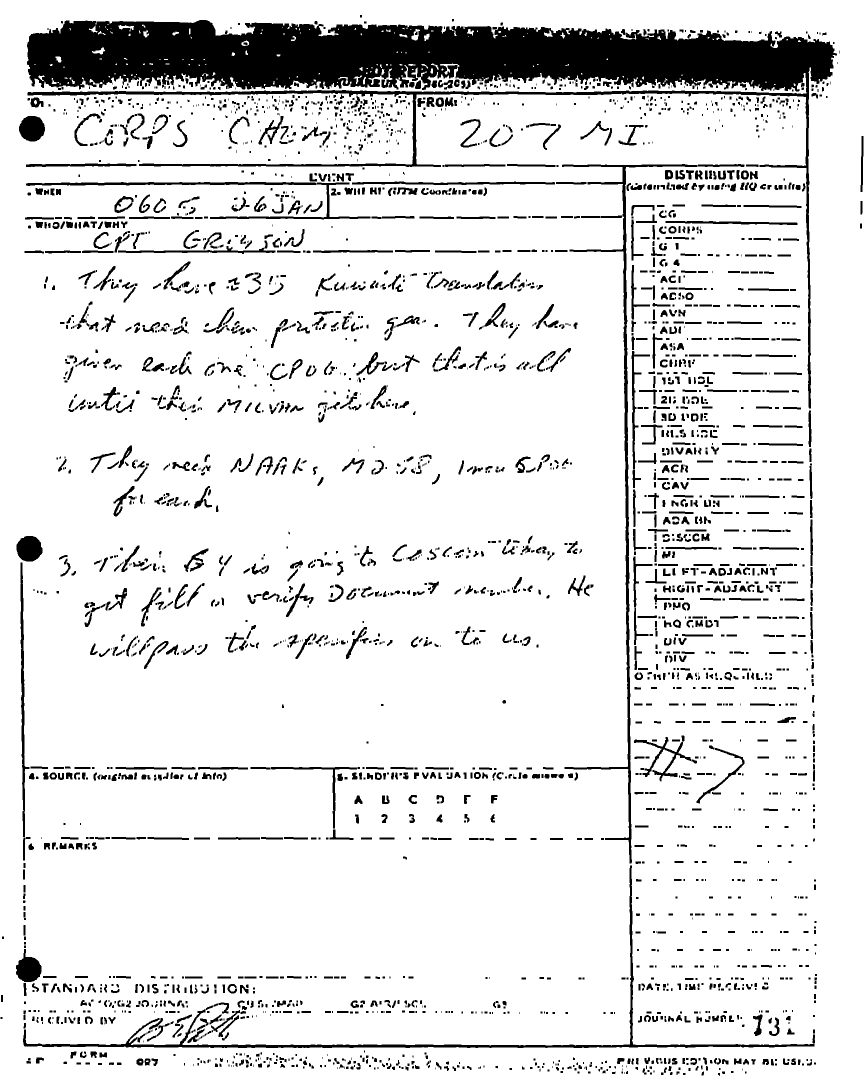 SPOT REPORT
TO: FROM:
CORPS CHEM 207 MI
EVENT
1. WHEN 2. WHERE (UTM Coordinates)
0605 26 JAN
3. WHO/WHAT/WHY
CPT
1. They have ±35 Kuwaiti translators
that need chem protective gear. They have
given each one CPOG but that is all
until their MILVAN gets here.
2. They need NAAKs, 1 more
for each.
3. Their is going to COSCOM today to
get fill or verify Document number. He
will pass the specifics on to us.
4. SOURCE (original supplier of info)
5. SENDER'S EVALUATION (Circle answers)
A B C D E F
1 2 3 4 5 6
6. REMARKS
DISTRIBUTION
(determined by using HQ or units)
CG
CORPS
G 1
G 4
ADSO
AVN
ASA
1ST BDE
2D BDE
3D BDE
RES BDE
DIVARTY
ACR
CAV
ENGR BN
ADA BN
DISCOM
MI
LEFT-ADJACENT
RIGHT-ADJACENT
PMO
HQ CMDT
DIV
DIV
OTHER AS REQUIRED
#7
STANDARD DISTRIBUTION:
RECEIVED BY
DATE/TIME RECEIVED
JOURNAL NUMBER 131
FORM PREVIOUS EDITION MAY BE USED.